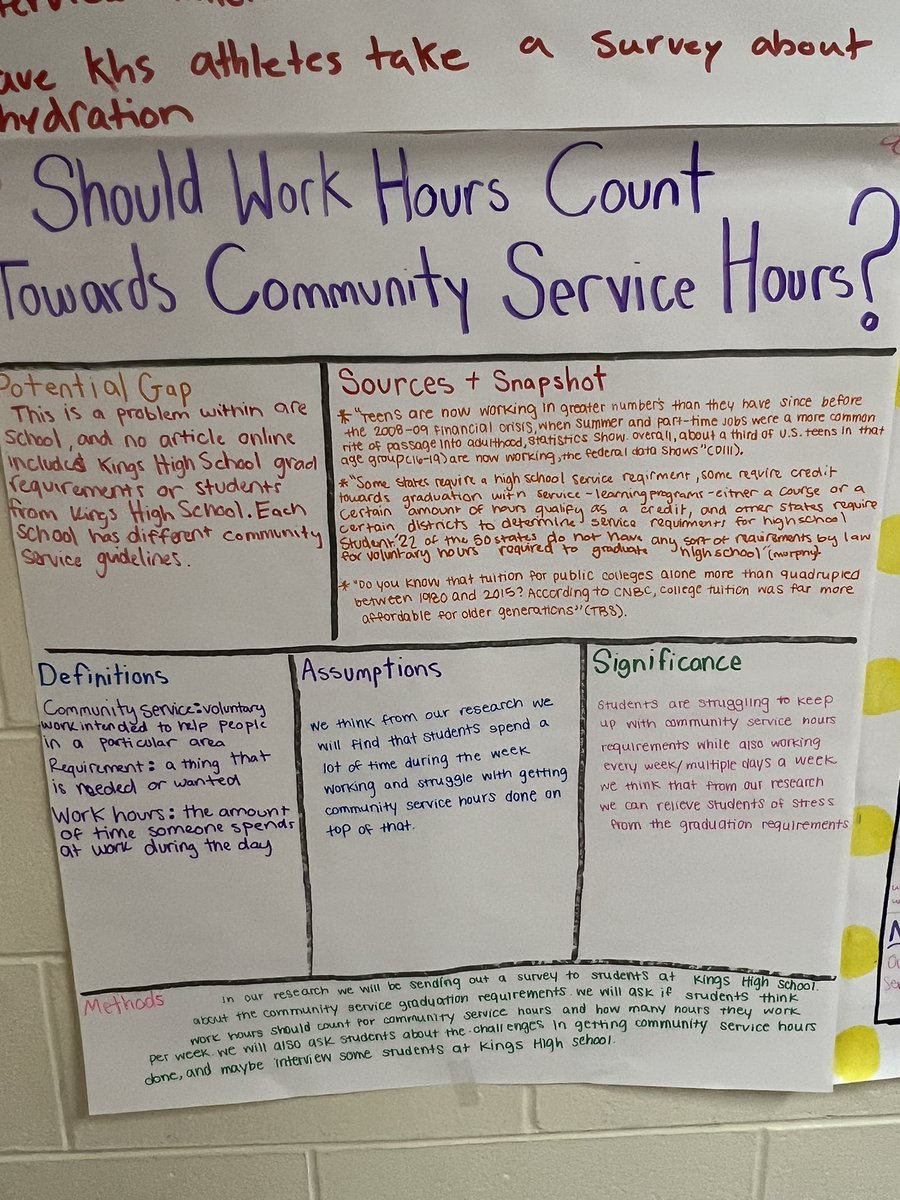 ave khs athletes take a survey about
hydration
Should Work Hours Count
Towards Community Service Hours?
Potential Gap
This is a problem within are
school, and no article online
includes Kings High School grad
requirements or students
from Kings High School. Each
school has different community
service guidelines.
Sources + Snapshot
* "Teens are now working in greater numbers than they have since before
the 2008-09 financial crisis, when summer and part-time jobs were a more common
rite of passage into adulthood, statistics show. overall, about a third of U.S. teens in that
age group(16-19) are now working, the federal data shows"
* "Some states require a high school service reqirment, some require credit
towards graduation with service-learning programs-either a course or a
certain amount of hours qualify as a credit, and other states require
certain districts to determine service requirments for high school
student. 22 of the 50 states do not have any sort of requirements by law
for voluntary hours required to graduate high school" (murphy)
* "Do you know that tuition for public colleges alone more than quadrupled
between 1980 and 2015? According to CNBC, college tuition was far more
affordable for older generations" (TBS).
Definitions
Community service: voluntary
work intended to help people
in a particular area
Requirement: a thing that
is needed or wanted
Work hours: the amount
of time someone spends
at work during the day
Assumptions
we think from our research we
will find that students spend a
lot of time during the week
working and struggle with getting
community service hours done on
top of that.
Significance
Students are struggling to keep
up with community service hours
requirements while also working
every week/multiple days a week
we think that from our research
we can relieve students of stress
from the graduation requirements
Methods
in our research we will be sending out a survey to students at Kings High school.
about the community service graduation requirements. we will ask if students think
work hours should count for community service hours and how many hours they work
per week. we will also ask students about the challenges in getting community service hours
done, and maybe interview some students at Kings High school.